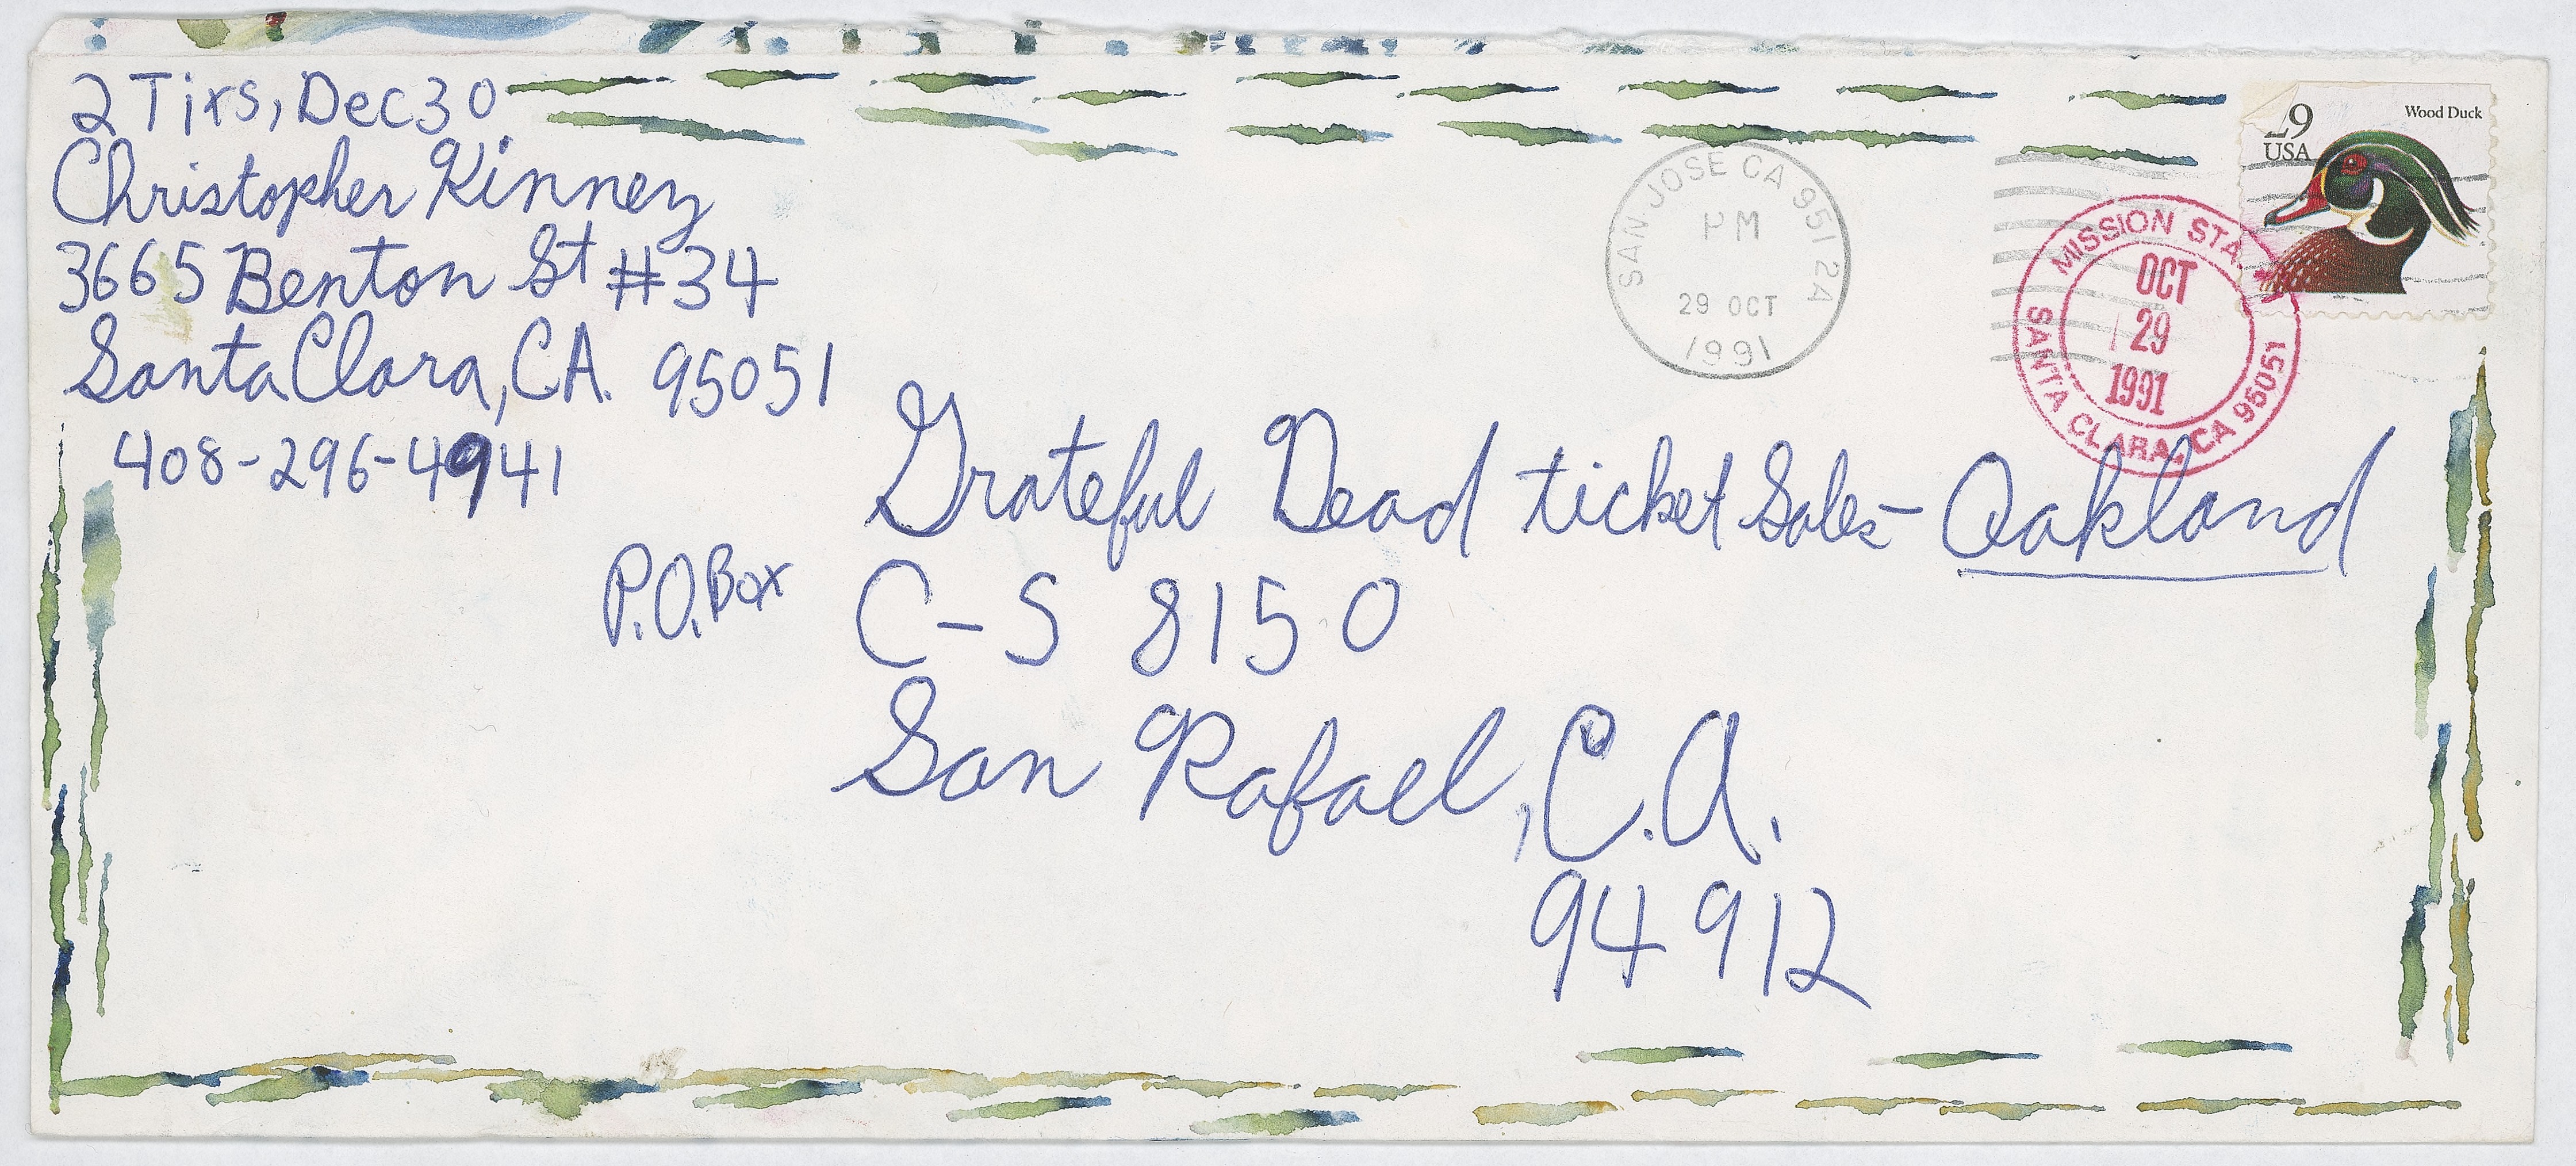 2 Tixs, Dec 30
Christopher Kinney
3665 Benton St #34
Santa Clara, CA. 95051
408-296-4941
29
USA
Wood Duck
SAN JOSE CA 951 2A
PM
29 OCT
1991
MISSION STA.
OCT
29
1991
SANTA CLARA, CA 95051
Grateful Dead ticket Sales - Oakland
P.O. Box C-S 8150
San Rafael, C.A.
94912